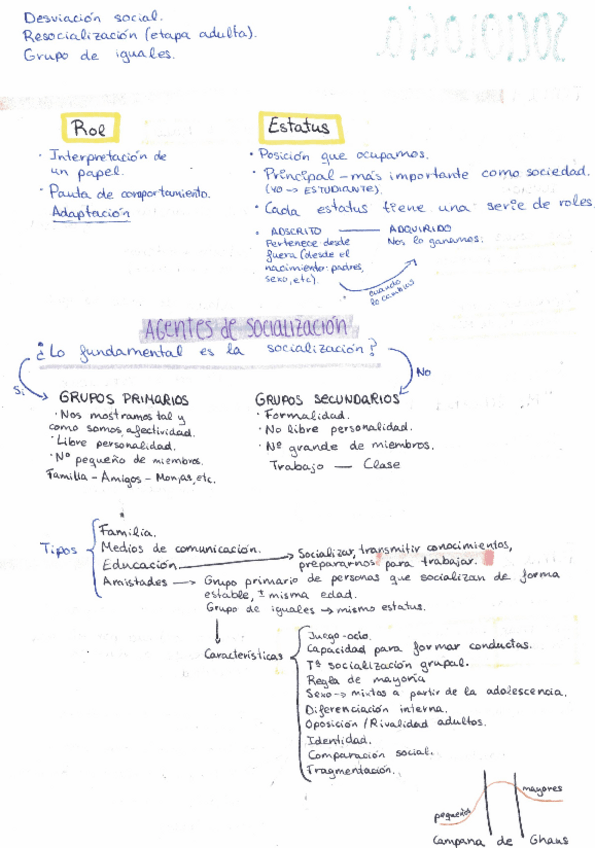 Desviación social.
Resocialización (etapa adulta).
Grupo de iguales.
SOCIOLOGÍA
Rol
· Interpretación de
un papel.
· Pauta de comportamiento.
Adaptación
Estatus
· Posición que ocupamos.
· Principal - más importante como sociedad.
(YO -> ESTUDIANTE).
· Cada estatus tiene una serie de roles
· ADSCRITO — ADQUIRIDO
Pertenece desde
fuera (desde el
nacimiento: padres,
sexo, etc).
Nos lo ganamos.
cuando
lo cambios
AGENTES DE SOCIALIZACIÓN
¿Lo fundamental es la socialización?
Sí
No
GRUPOS PRIMARIOS
· Nos mostramos tal y
como somos, afectividad.
· Libre personalidad.
· Nº pequeño de miembros.
Familia - Amigos - Monjas, etc.
GRUPOS SECUNDARIOS
· Formalidad.
· No libre personalidad.
· Nº grande de miembros.
Trabajo — Clase
Tipos
Familia.
Medios de comunicación.
Educación → Socializar, transmitir conocimientos,
prepararnos para trabajar.
Amistades → Grupo primario de personas que socializan de forma
estable, ± misma edad.
Grupo de iguales → mismo estatus.
Características
Juego-ocio.
Capacidad para formar conductas.
Tª socialización grupal.
Regla de mayoría
Sexo -> mixtos a partir de la adolescencia.
Diferenciación interna.
Oposición / Rivalidad adultos.
Identidad.
Comparación social.
Fragmentación.
pequeños
mayores
Campana de Ghaus